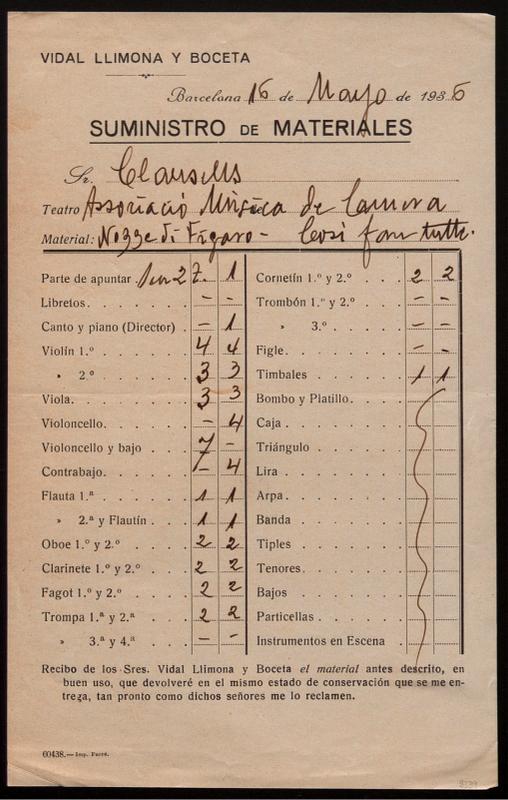 VIDAL LLIMONA Y BOCETA
Barcelona 16 de Mayo de 1936
SUMINISTRO DE MATERIALES
Sr. Clausells
Teatro Associació Música de Camera
Material: Nozze di Figaro - Cosi fan tutte.
Parte de apuntar 2 1
Libretos - -
Canto y piano (Director) - 1
Violín 1.º 4 4
» 2.º 3 3
Viola 3 3
Violoncello - 4
Violoncello y bajo 7 -
Contrabajo - 4
Flauta 1.ª 1 1
» 2.ª y Flautín 1 1
Oboe 1.º y 2.º 2 2
Clarinete 1.º y 2.º 2 2
Fagot 1.º y 2.º 2 2
Trompa 1.ª y 2.ª 2 2
» 3.ª y 4.ª - -
Cornetín 1.º y 2.º 2 2
Trombón 1.º y 2.º - -
» 3.º - -
Figle - -
Timbales 1 1
Bombo y Platillo
Caja
Triángulo
Lira
Arpa
Banda
Tiples
Tenores
Bajos
Particellas
Instrumentos en Escena
Recibo de los Sres. Vidal Llimona y Boceta el material antes descrito, en
buen uso, que devolveré en el mismo estado de conservación que se me en-
trega, tan pronto como dichos señores me lo reclamen.
60438.—Imp. Farré.